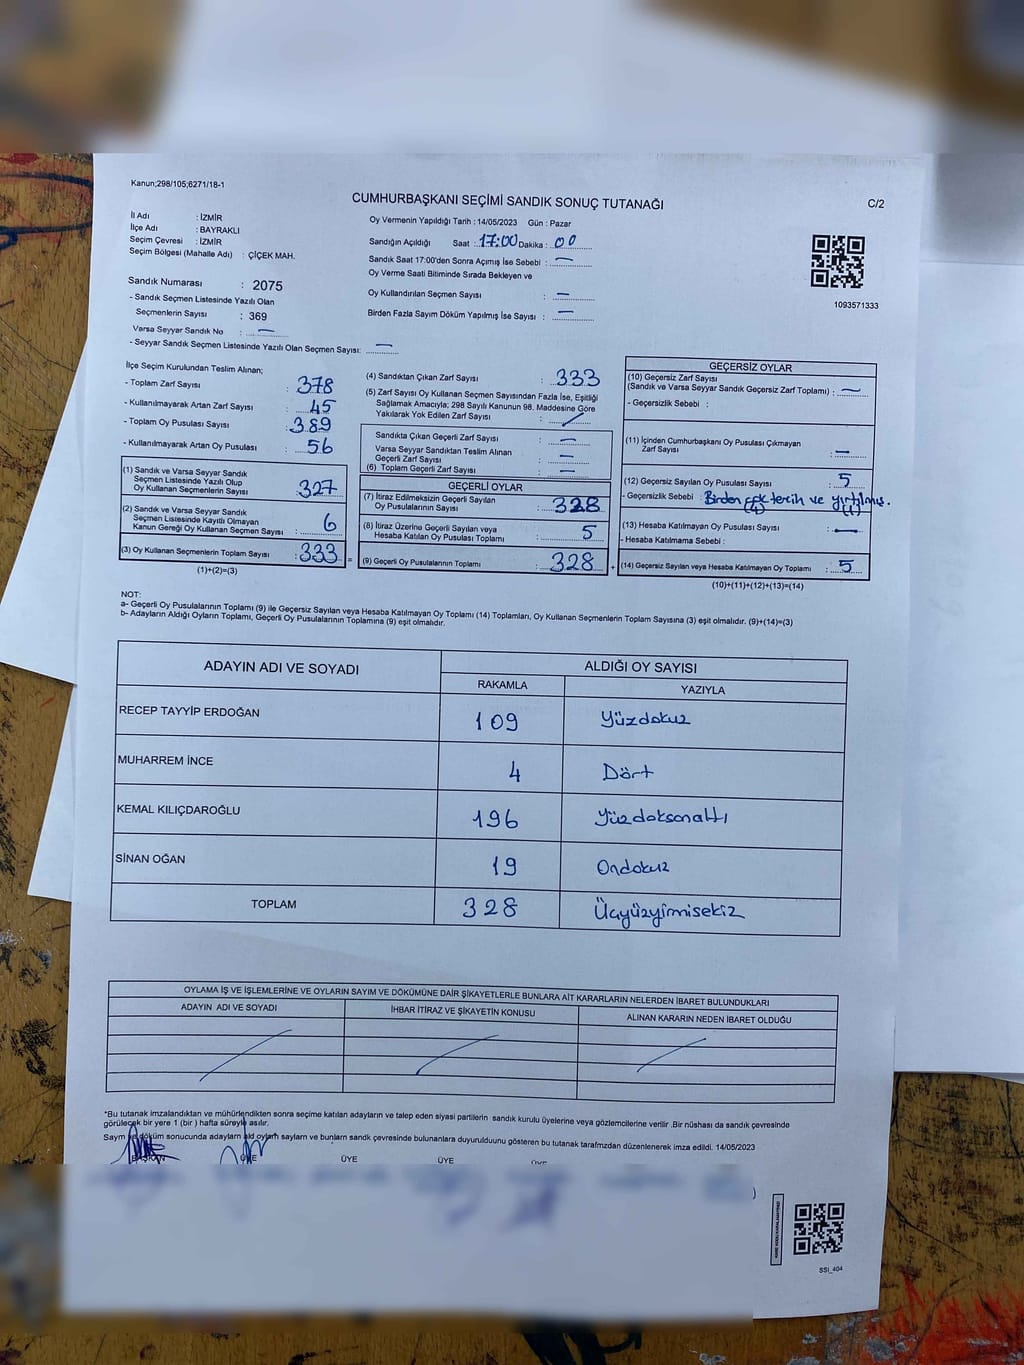 Kanun;298/105;6271/18-1
CUMHURBAŞKANI SEÇİMİ SANDIK SONUÇ TUTANAĞI
C/2
İl Adı : İZMİR
İlçe Adı : BAYRAKLI
Seçim Çevresi : İZMİR
Seçim Bölgesi (Mahalle Adı) : ÇİÇEK MAH.
Sandık Numarası : 2075
- Sandık Seçmen Listesinde Yazılı Olan
Seçmenlerin Sayısı : 369
Varsa Seyyar Sandık No : —
- Seyyar Sandık Seçmen Listesinde Yazılı Olan Seçmen Sayısı: —
Oy Vermenin Yapıldığı Tarih : 14/05/2023 Gün : Pazar
Sandığın Açıldığı Saat : 17:00 Dakika : 00
Sandık Saat 17:00'den Sonra Açımış İse Sebebi : —
Oy Verme Saati Bitiminde Sırada Bekleyen ve
Oy Kullandırılan Seçmen Sayısı : —
Birden Fazla Sayım Döküm Yapılmış İse Sayısı : —
1093571333
İlçe Seçim Kurulundan Teslim Alınan;
- Toplam Zarf Sayısı : 378
- Kullanılmayarak Artan Zarf Sayısı : 45
- Toplam Oy Pusulası Sayısı : 389
- Kullanılmayarak Artan Oy Pusulası : 56
(1) Sandık ve Varsa Seyyar Sandık
Seçmen Listesinde Yazılı Olup
Oy Kullanan Seçmenlerin Sayısı : 327
(2) Sandık ve Varsa Seyyar Sandık
Seçmen Listesinde Kayıtlı Olmayan
Kanun Gereği Oy Kullanan Seçmen Sayısı : 6
(3) Oy Kullanan Seçmenlerin Toplam Sayısı : 333
(1)+(2)=(3)
(4) Sandıktan Çıkan Zarf Sayısı : 333
(5) Zarf Sayısı Oy Kullanan Seçmen Sayısından Fazla İse, Eşitliği
Sağlamak Amacıyla; 298 Sayılı Kanunun 98. Maddesine Göre
Yakılarak Yok Edilen Zarf Sayısı :
Sandıkta Çıkan Geçerli Zarf Sayısı : —
Varsa Seyyar Sandıktan Teslim Alınan
Geçerli Zarf Sayısı : —
(6) Toplam Geçerli Zarf Sayısı : —
GEÇERLİ OYLAR
(7) İtiraz Edilmeksizin Geçerli Sayılan
Oy Pusulalarının Sayısı : 328
(8) İtiraz Üzerine Geçerli Sayılan veya
Hesaba Katılan Oy Pusulası Toplamı : 5
= (9) Geçerli Oy Pusulalarının Toplamı : 328
GEÇERSİZ OYLAR
(10) Geçersiz Zarf Sayısı
(Sandık ve Varsa Seyyar Sandık Geçersiz Zarf Toplamı) : —
- Geçersizlik Sebebi :
(11) İçinden Cumhurbaşkanı Oy Pusulası Çıkmayan
Zarf Sayısı : —
(12) Geçersiz Sayılan Oy Pusulası Sayısı : 5
- Geçersizlik Sebebi : Birden çok tercih ve yırtılmış.
(4) (1)
(13) Hesaba Katılmayan Oy Pusulası Sayısı : —
- Hesaba Katılmama Sebebi :
+ (14) Geçersiz Sayılan veya Hesaba Katılmayan Oy Toplamı : 5
(10)+(11)+(12)+(13)=(14)
NOT:
a- Geçerli Oy Pusulalarının Toplamı (9) ile Geçersiz Sayılan veya Hesaba Katılmayan Oy Toplamı (14) Toplamları, Oy Kullanan Seçmenlerin Toplam Sayısına (3) eşit olmalıdır. (9)+(14)=(3)
b- Adayların Aldığı Oyların Toplamı, Geçerli Oy Pusulalarının Toplamına (9) eşit olmalıdır.
ADAYIN ADI VE SOYADI
ALDIĞI OY SAYISI
RAKAMLA YAZIYLA
RECEP TAYYİP ERDOĞAN 109 Yüzdokuz
MUHARREM İNCE 4 Dört
KEMAL KILIÇDAROĞLU 196 Yüzdoksanaltı
SİNAN OĞAN 19 Ondokuz
TOPLAM 328 Üçyüzyirmisekiz
OYLAMA İŞ VE İŞLEMLERİNE VE OYLARIN SAYIM VE DÖKÜMÜNE DAİR ŞİKAYETLERLE BUNLARA AİT KARARLARIN NELERDEN İBARET BULUNDUKLARI
ADAYIN ADI VE SOYADI İHBAR İTİRAZ VE ŞİKAYETİN KONUSU ALINAN KARARIN NEDEN İBARET OLDUĞU
*Bu tutanak imzalandıktan ve mühürlendikten sonra seçime katılan adayların ve talep eden siyasi partilerin sandık kurulu üyelerine veya gözlemcilerine verilir .Bir nüshası da sandık çevresinde
görülecek bir yere 1 (bir ) hafta süreyle asılır.
Sayım ve döküm sonucunda adayların ald oyların sayları ve bunların sandk çevresinde bulunanlara duyurulduunu gösteren bu tutanak tarafmzdan düzenlenerek imza edildi. 14/05/2023
BAŞKAN ÜYE ÜYE ÜYE ÜYE
SSI_404